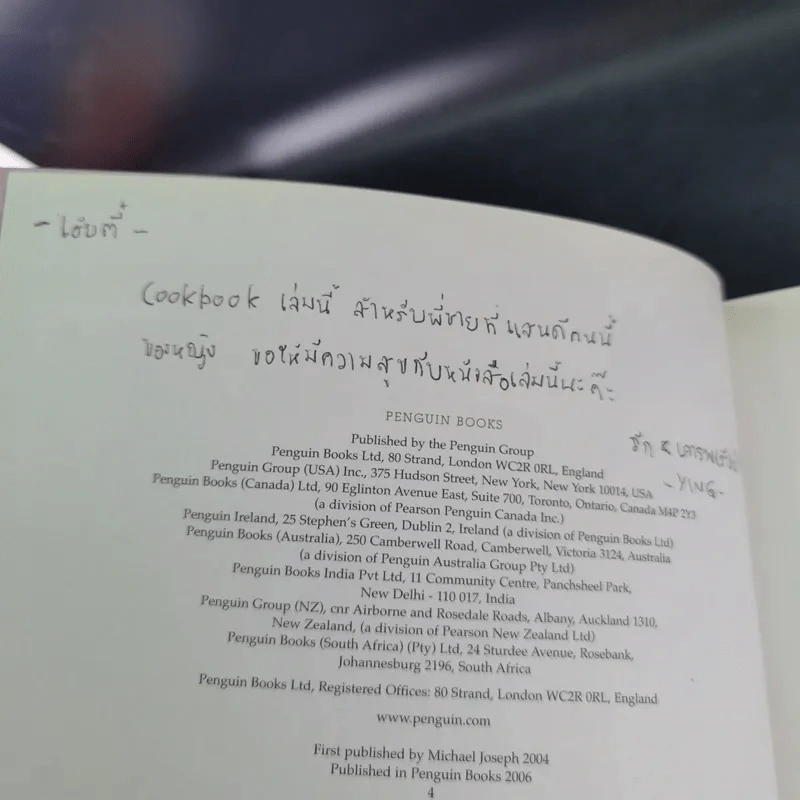 - เฮียตี๋ -
Cookbook เล่มนี้ สำหรับพี่ชายที่แสนดีคนนี้
ของหญิง ขอให้มีความสุขกับหนังสือเล่มนี้นะค๊ะ
รัก &
- YING -
PENGUIN BOOKS
Published by the Penguin Group
Penguin Books Ltd, 80 Strand, London WC2R 0RL, England
Penguin Group (USA) Inc., 375 Hudson Street, New York, New York 10014, USA
Penguin Books (Canada) Ltd, 90 Eglinton Avenue East, Suite 700, Toronto, Ontario, Canada M4P 2Y3
(a division of Pearson Penguin Canada Inc.)
Penguin Ireland, 25 Stephen's Green, Dublin 2, Ireland (a division of Penguin Books Ltd)
Penguin Books (Australia), 250 Camberwell Road, Camberwell, Victoria 3124, Australia
(a division of Penguin Australia Group Pty Ltd)
Penguin Books India Pvt Ltd, 11 Community Centre, Panchsheel Park,
New Delhi - 110 017, India
Penguin Group (NZ), cnr Airborne and Rosedale Roads, Albany, Auckland 1310,
New Zealand, (a division of Pearson New Zealand Ltd)
Penguin Books (South Africa) (Pty) Ltd, 24 Sturdee Avenue, Rosebank,
Johannesburg 2196, South Africa
Penguin Books Ltd, Registered Offices: 80 Strand, London WC2R 0RL, England
www.penguin.com
First published by Michael Joseph 2004
Published in Penguin Books 2006
4